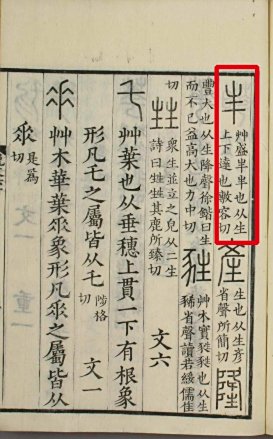 丰 艸盛丰丰也从生
上下達也敷容切
產 生也从生彦
省聲所簡切
隆
豐大也从生降聲徐鍇曰生
而不已益高大也力中切
㽔 艸木實㽔㽔也从生
豨省聲讀若綏儒隹
切
甡 眾生並立之皃从二生
詩曰甡甡其鹿所臻切
文六
乇 艸葉也从垂穗上貫一下有根象
形凡乇之屬皆从乇 陟格
切 文一
𠂹 艸木華葉𠂹象形凡𠂹之屬皆从
𠂹 是爲
切
文一 重一